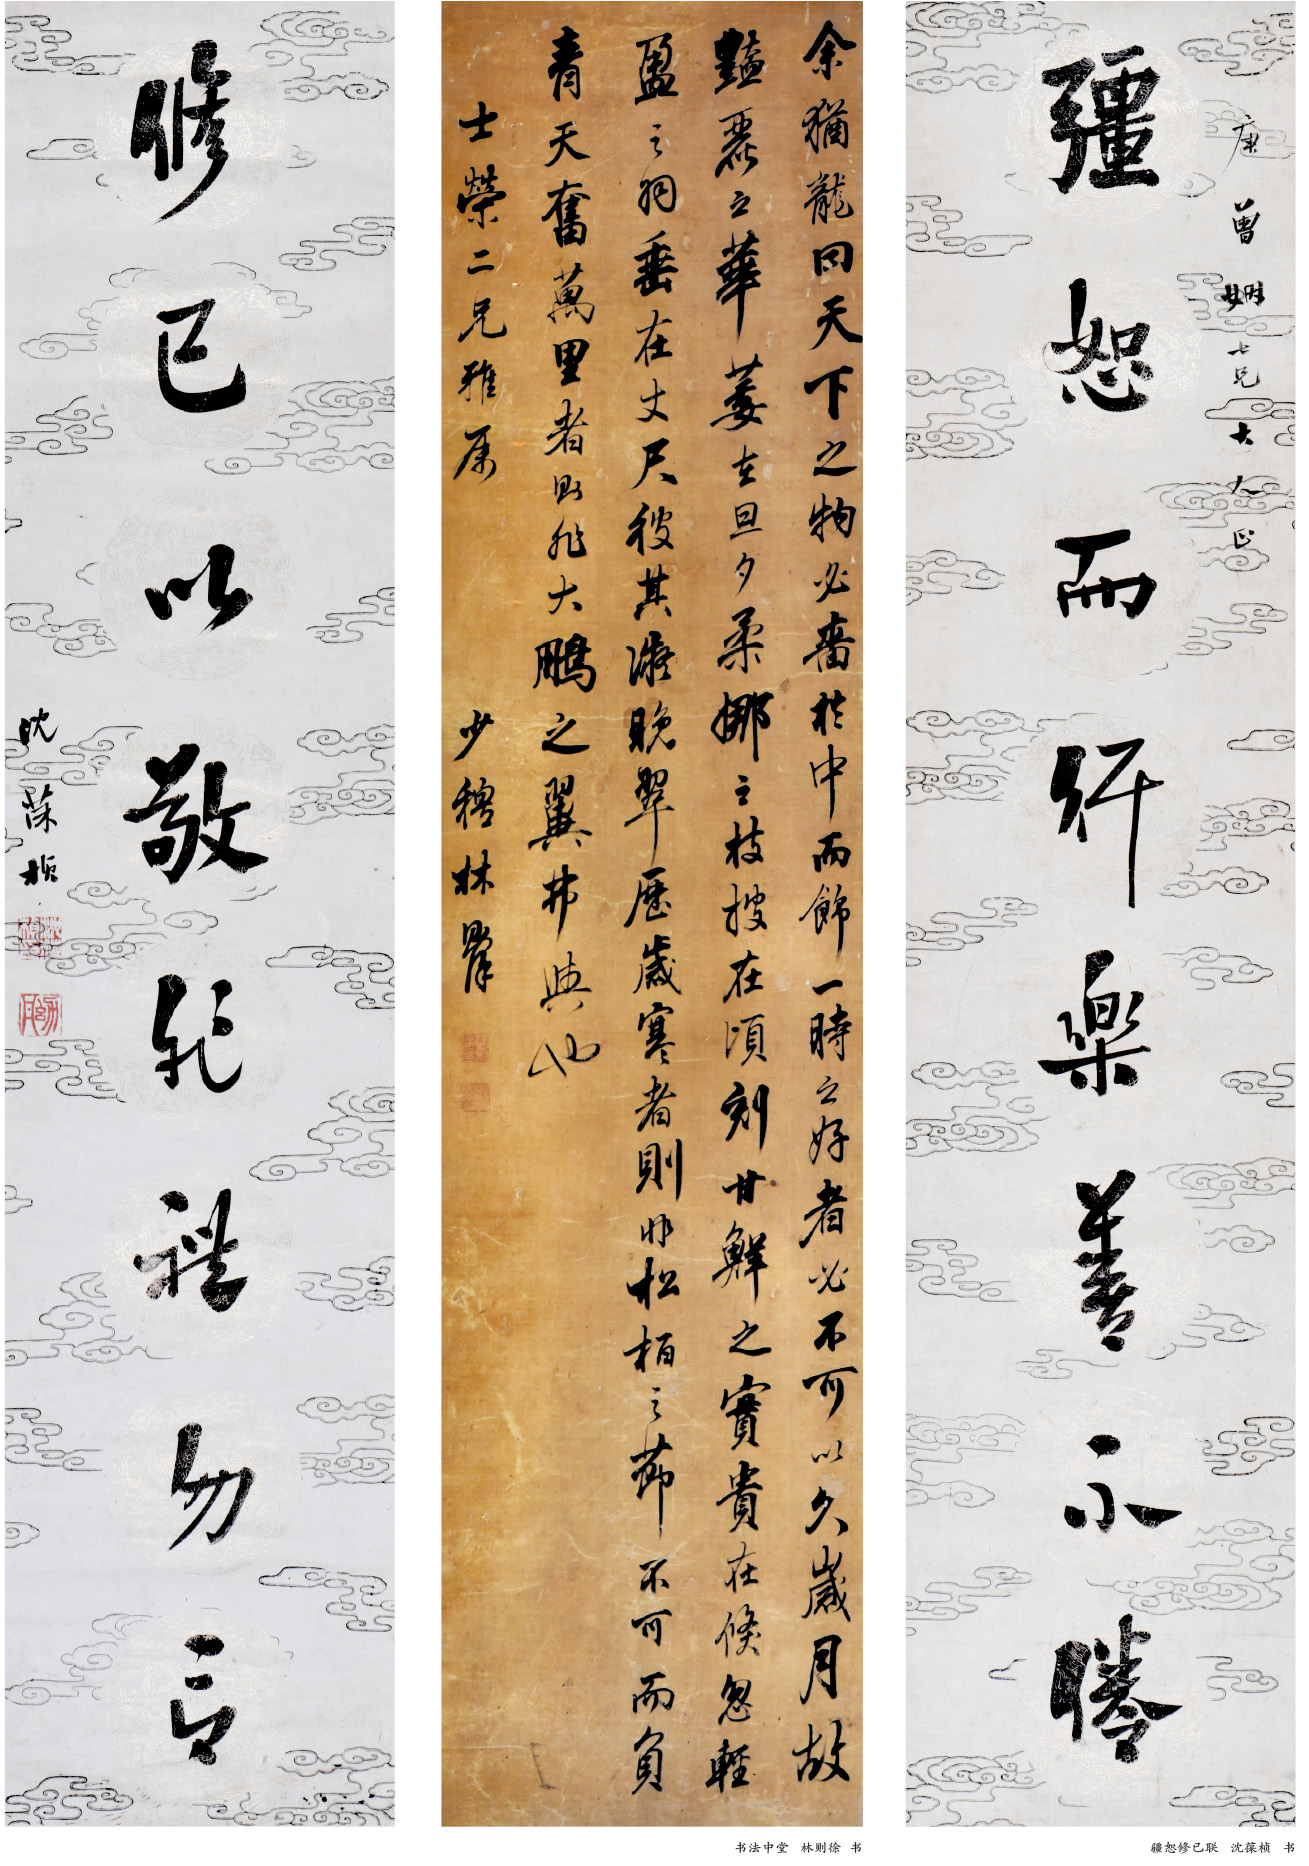 康曾姻七兄大人正
彊恕而行樂善不勝
余猶龍曰天下之物必啬於中而飾一時之好者必不可以久歲月故
豔麗之華萎在旦夕柔娜之枝搜在頃刻甘鮮之實貴在倏忽輕
盈之羽垂在丈尺彼其凝晚翠歷歲寒者則非松柏之節不可而負
青天奮萬里者則非大鵬之翼弗與也
士榮二兄雅屬
少穆林
修已以敬非禮勿言
沈葆楨
书法中堂 林则徐 书
疆恕修已联 沈葆桢 书